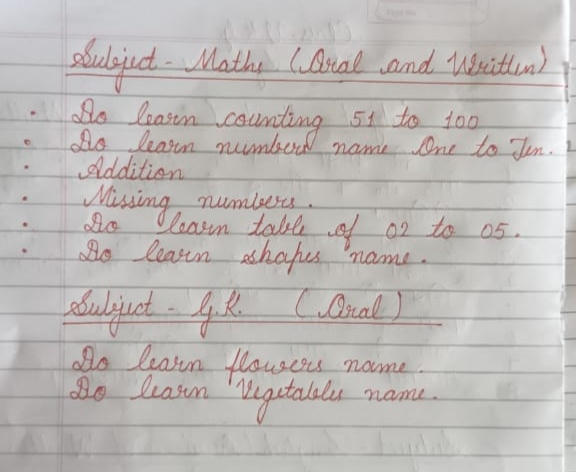 Subject - Maths (Oral and Written)
• Do learn counting 51 to 100
• Do learn numbers name One to Ten.
• Addition
• Missing numbers.
• Do learn table of 02 to 05.
• Do learn shapes name.
Subject - G.K. (Oral)
Do learn flowers name.
Do learn Vegetables name.